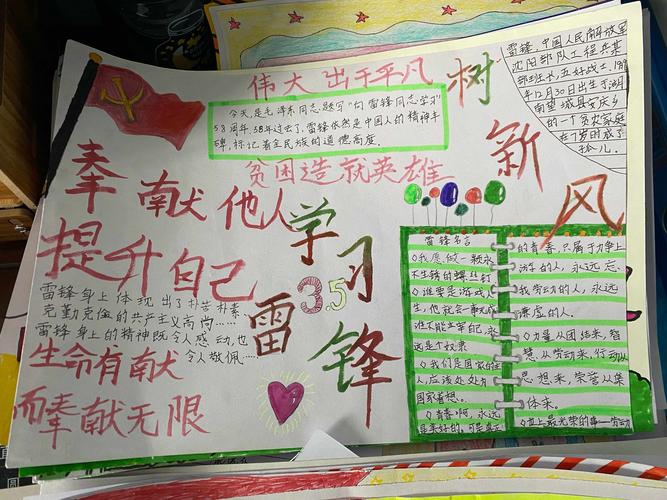 伟大出于平凡
今天,是毛泽东同志题写"向雷锋同志学习"
58周年,58年过去了,雷锋依然是中国人的精神丰
碑,标记着全民族的道德高度。
贫困造就英雄
树
新
风
雷锋,中国人民解放军
沈阳部队工程兵某
年12月30日出生于湖
南望城县安庆乡
的一个贫农家庭
在7岁时成了
孤儿.
奉献他人
提升自己
学习
雷锋
3.5
雷锋身上体现出了朴苦朴素、
克勤克俭的共产主义高尚……
雷锋身上的精神既令人感动,也
令人敬佩……
生命有献
而奉献无限
雷锋名言
○我愿做一颗永
不生锈的螺丝钉
○谁要是游戏人
生,他就会一事无成
谁不能主宰自己,永
远是个奴隶
○我们是国家的主
人,应该处处为
国家着想。
○青春啊,永远
是美好的,可是真正
的青春,只属于力争上
游的人,永远忘
我劳动的人,永远
谦虚的人。
○力量从团结来,智
慧从劳动来,行动从
思想来,荣誉从集
体来。
○世上最光荣的事—劳动